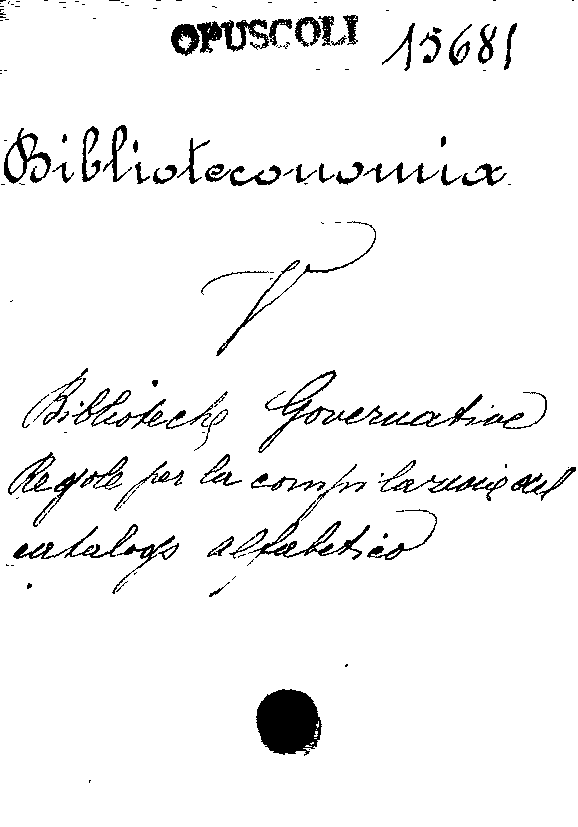 OPUSCOLI 15681
Biblioteconomia
V
Biblioteche Governative
Regole per la compilazione del
catalogo alfabetico